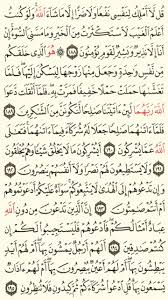 قُل لَّآ أَمْلِكُ لِنَفْسِى نَفْعًا وَلَا ضَرًّا إِلَّا مَا شَآءَ ٱللَّهُ وَلَوْ كُنتُ
أَعْلَمُ ٱلْغَيْبَ لَٱسْتَكْثَرْتُ مِنَ ٱلْخَيْرِ وَمَا مَسَّنِىَ ٱلسُّوٓءُ إِنْ
أَنَا۠ إِلَّا نَذِيرٌ وَبَشِيرٌ لِّقَوْمٍ يُؤْمِنُونَ ١٨٨ هُوَ ٱلَّذِى خَلَقَكُم
مِّن نَّفْسٍ وَٰحِدَةٍ وَجَعَلَ مِنْهَا زَوْجَهَا لِيَسْكُنَ إِلَيْهَا فَلَمَّا
تَغَشَّىٰهَا حَمَلَتْ حَمْلًا خَفِيفًا فَمَرَّتْ بِهِۦ فَلَمَّآ أَثْقَلَت دَّعَوَا
ٱللَّهَ رَبَّهُمَا لَئِنْ ءَاتَيْتَنَا صَٰلِحًا لَّنَكُونَنَّ مِنَ ٱلشَّٰكِرِينَ ١٨٩
فَلَمَّآ ءَاتَىٰهُمَا صَٰلِحًا جَعَلَا لَهُۥ شُرَكَآءَ فِيمَآ ءَاتَىٰهُمَا فَتَعَٰلَى
ٱللَّهُ عَمَّا يُشْرِكُونَ ١٩٠ أَيُشْرِكُونَ مَا لَا يَخْلُقُ شَيْـًٔا وَهُمْ يُخْلَقُونَ
١٩١ وَلَا يَسْتَطِيعُونَ لَهُمْ نَصْرًا وَلَآ أَنفُسَهُمْ يَنصُرُونَ ١٩٢
وَإِن تَدْعُوهُمْ إِلَى ٱلْهُدَىٰ لَا يَتَّبِعُوكُمْ سَوَآءٌ عَلَيْكُمْ أَدَعَوْتُمُوهُمْ
أَمْ أَنتُمْ صَٰمِتُونَ ١٩٣ إِنَّ ٱلَّذِينَ تَدْعُونَ مِن دُونِ ٱللَّهِ
عِبَادٌ أَمْثَالُكُمْ فَٱدْعُوهُمْ فَلْيَسْتَجِيبُوا۟ لَكُمْ إِن
كُنتُمْ صَٰدِقِينَ ١٩٤ أَلَهُمْ أَرْجُلٌ يَمْشُونَ بِهَآ أَمْ لَهُمْ أَيْدٍ
يَبْطِشُونَ بِهَآ أَمْ لَهُمْ أَعْيُنٌ يُبْصِرُونَ بِهَآ أَمْ لَهُمْ ءَاذَانٌ
يَسْمَعُونَ بِهَا قُلِ ٱدْعُوا۟ شُرَكَآءَكُمْ ثُمَّ كِيدُونِ فَلَا تُنظِرُونِ ١٩٥